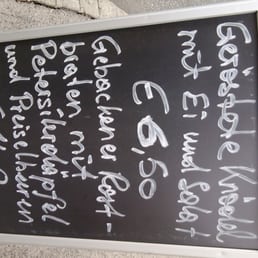 Geröstete Knödel
mit Ei und Salat
€ 6,50
Gebackener Rost-
braten mit
Petersilerdäpfel
und Preiselbeeren